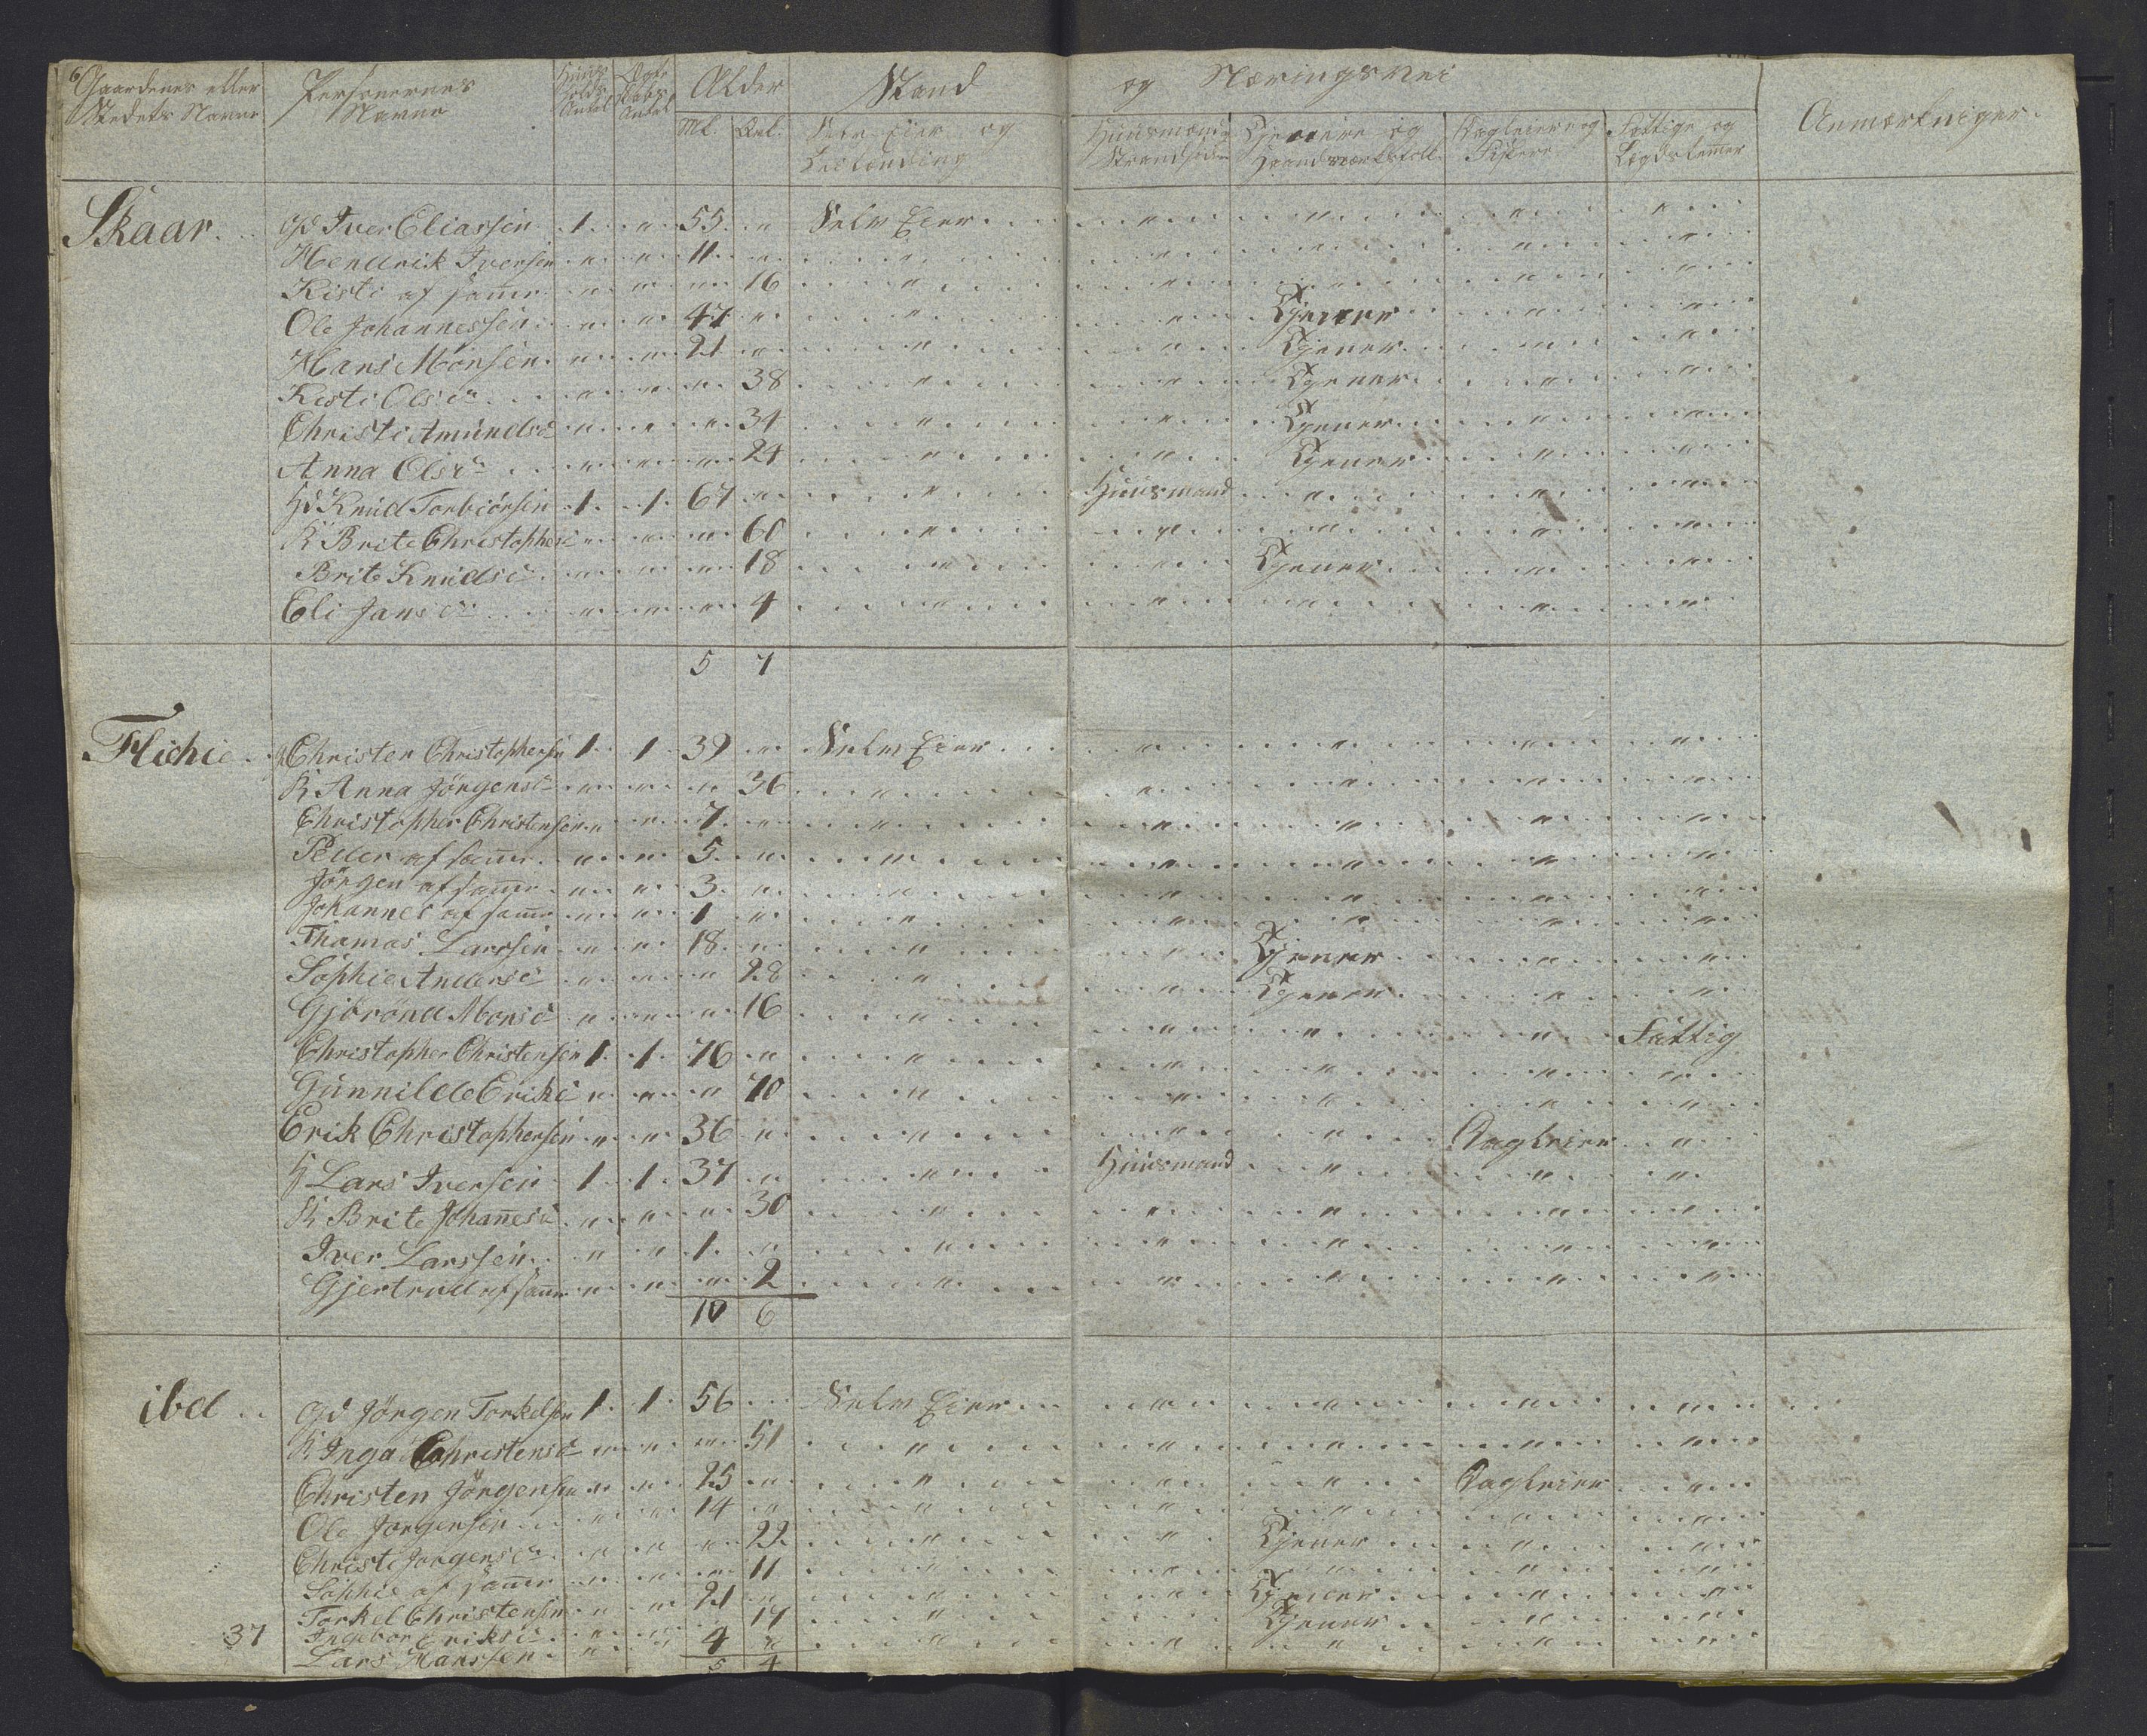 6
Gaardenes eller Stedets Navne | Personernes Navne | Huus Holds Antal | Ægte Skabs Antal | Alder | Stand og Næringsvei | Anmærkninger
Ml. | Qel. | Selv Eier og Leilending | Huusmænd Strandsidere | Tjenere og Haandværksfolk | Dagleiere og Fiskere | Fattige og Lægdslemmer
Skaar | Gd Iver Eliassen | 1 | " | 55 | " | Selv Eier
Hendrik Iversen | " | " | 11 | "
Kisti af samme | " | " | " | 16
Ole Johannessen | " | " | 47 | " | Tjener
Hans Monsen | " | " | 21 | " | Tjener
Kisti Olsdr | " | " | " | 38 | Tjener
Christi Amundsd | " | " | " | 34 | Tjener
Anna Olsdr | " | " | " | 24 | Tjener
Hd Knud Torbiörnsen | 1 | 1 | 67 | " | Huusmand
K Brite Christophersd | " | " | " | 60
Brite Knudsdr | " | " | " | 18 | Tjener
Eli Jansdr | " | " | " | 4
5 7
Flichie | G Christen Christophersen | 1 | 1 | 39 | " | Selv Eier
K Anna Jörgensd | " | " | " | 36
Christopher Christensen | " | " | 7 | "
Peder af samme | " | " | 5 | "
Jörgen af samme | " | " | 3 | "
Johannes af samme | " | " | 1 | "
Thomas Larssen | " | " | 18 | " | Tjener
Sophie Andersd | " | " | " | 28 | Tjener
Gjörönd Monsd | " | " | " | 16
Christopher Christensen | 1 | 1 | 76 | " | Fattig
Gunnilde Eriksd | " | " | " | 70
Erik Christophersen | " | " | 36 | " | Dagleier
H Lars Iversen | 1 | 1 | 37 | " | Huusmand
K Brite Johanesd | " | " | " | 30
Iver Larssen | " | " | 1 | "
Gjertrud af samme | " | " | " | 2
10 6
ibd | Gd Jörgen Torkelsen | 1 | 1 | 56 | Selv Eier
K Inga Christensd | " | " | " | 51
Christen Jörgensen | " | " | 25 | " | Dagleier
Ole Jörgensen | " | " | 14 | "
Christi Jörgensdr | " | " | " | 22 | Tjener
Sophie af samme | " | " | " | 11
Torkel Christensen | " | " | 21 | " | Tjener
Ingebor Eriksdr | " | " | " | 17 | Tjener
37 | Lars Hanssen | " | " | 4 | "
5 4